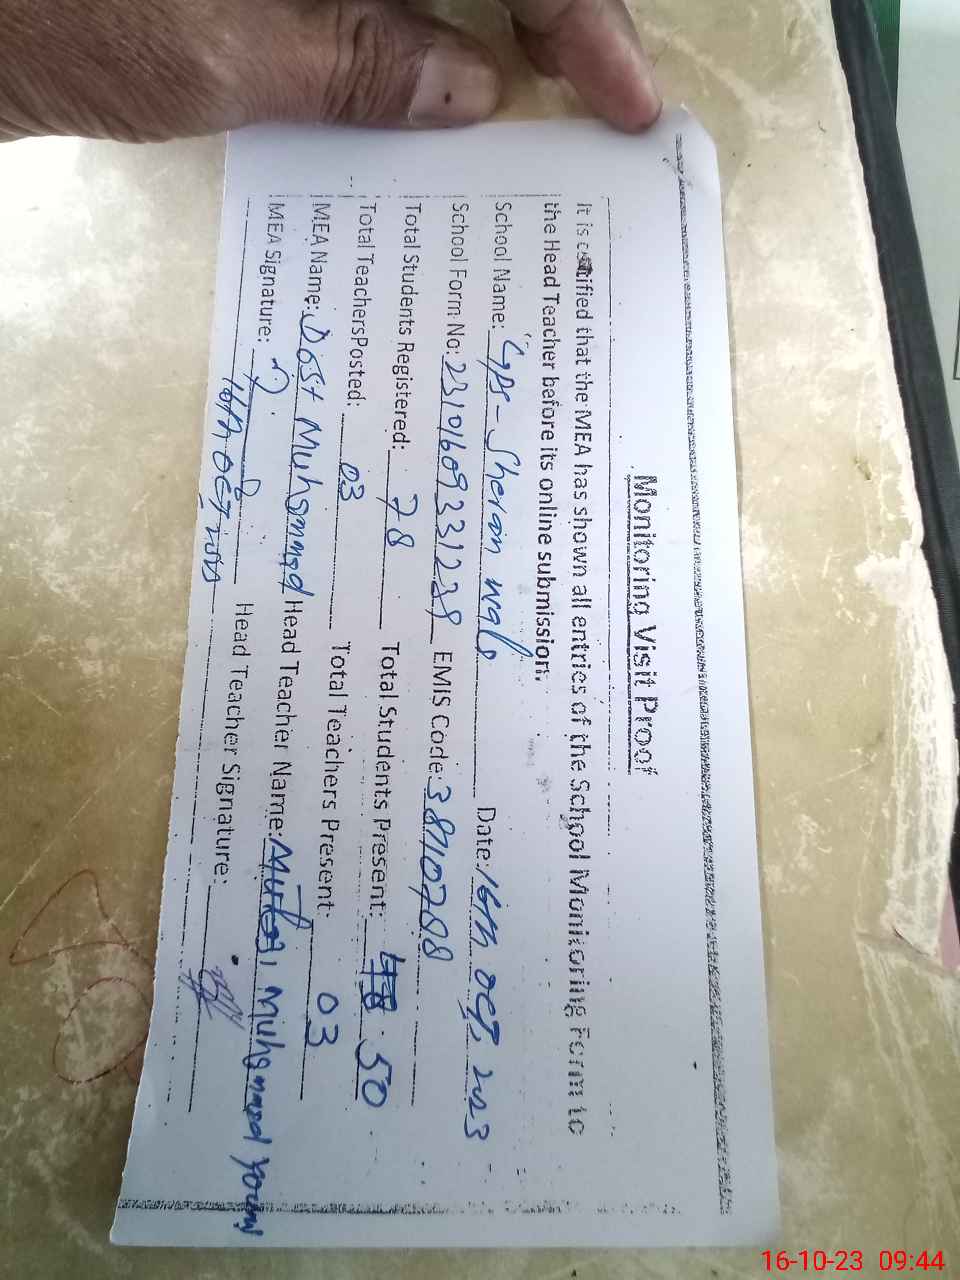 Monitoring Visit Proof
It is certified that the MEA has shown all entries of the School Monitoring Form to
the Head Teacher before its online submission.
School Name: GPS-Sheran wala Date: 16th oct, 2023
School Form No: 23101609331238 EMIS Code: 3810788
Total Students Registered: 78 Total Students Present: 48 50
Total TeachersPosted: 03 Total Teachers Present: 03
MEA Name: Dost Muhammad Head Teacher Name: Muhammad
MEA Signature: Head Teacher Signature:
16th oct
16-10-23 09:44